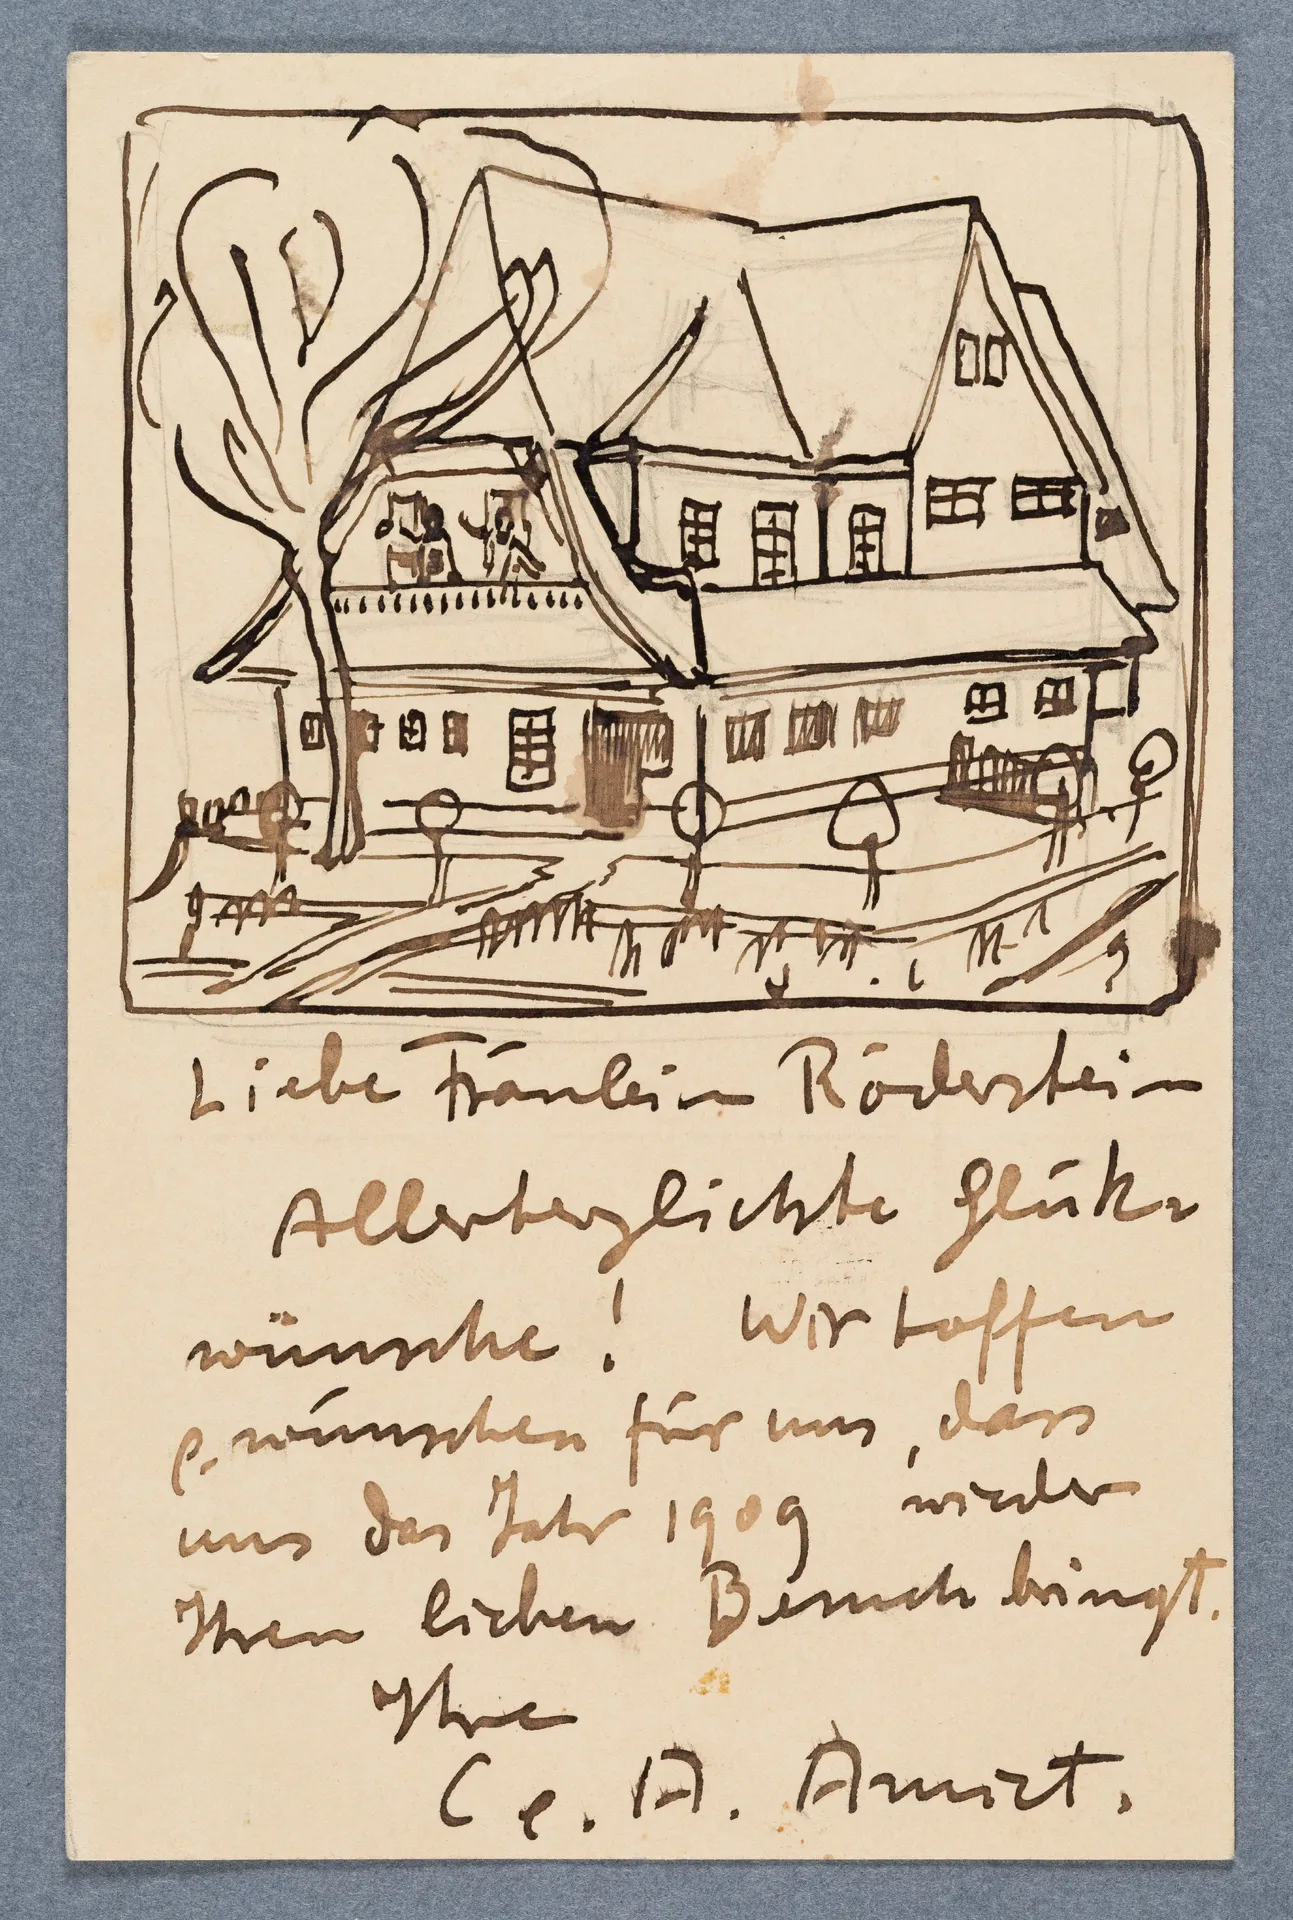 Liebe Fräulein Röderstein
Allerherzlichste Glük-
wünsche! Wir hoffen
e. wünschen für uns, dass
uns das Jahr 1909 wieder
Ihren lieben Besuch bringt.
Ihre
C e. A. Amiet.